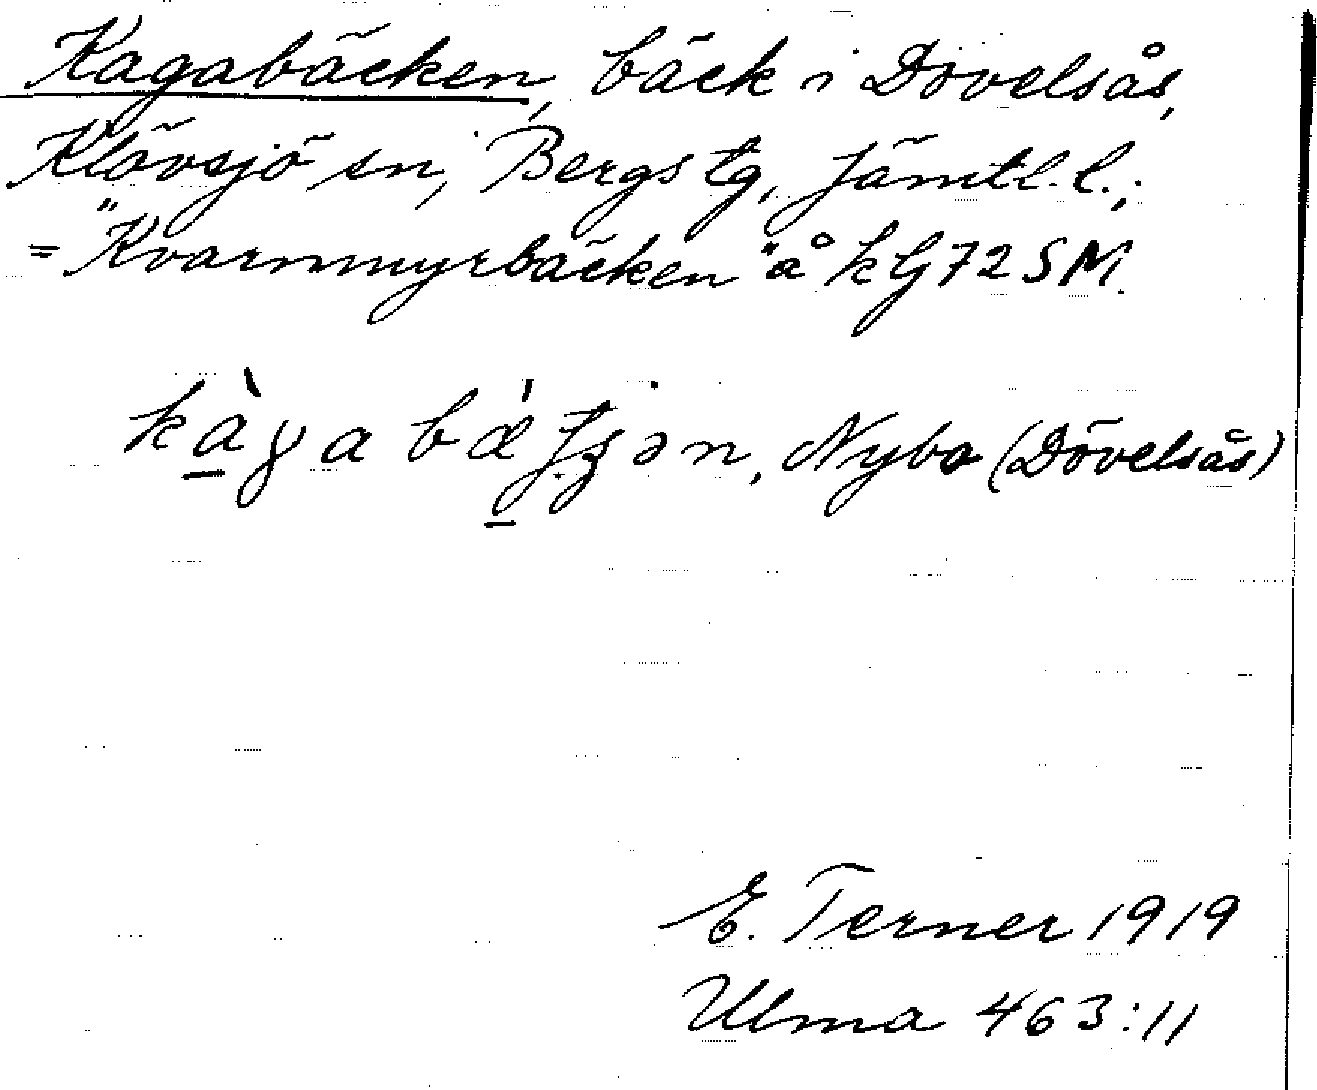 Kagabäcken, bäck i Dövelsås,
Klövsjö sn, Bergs tg, Jämtl. l.;
= "Kvarnmyrbäcken" å kG 72 SM.
kàgabǽ ən, Nybo (Dövelsås)
E. Terner 1919
Ulma 463:11